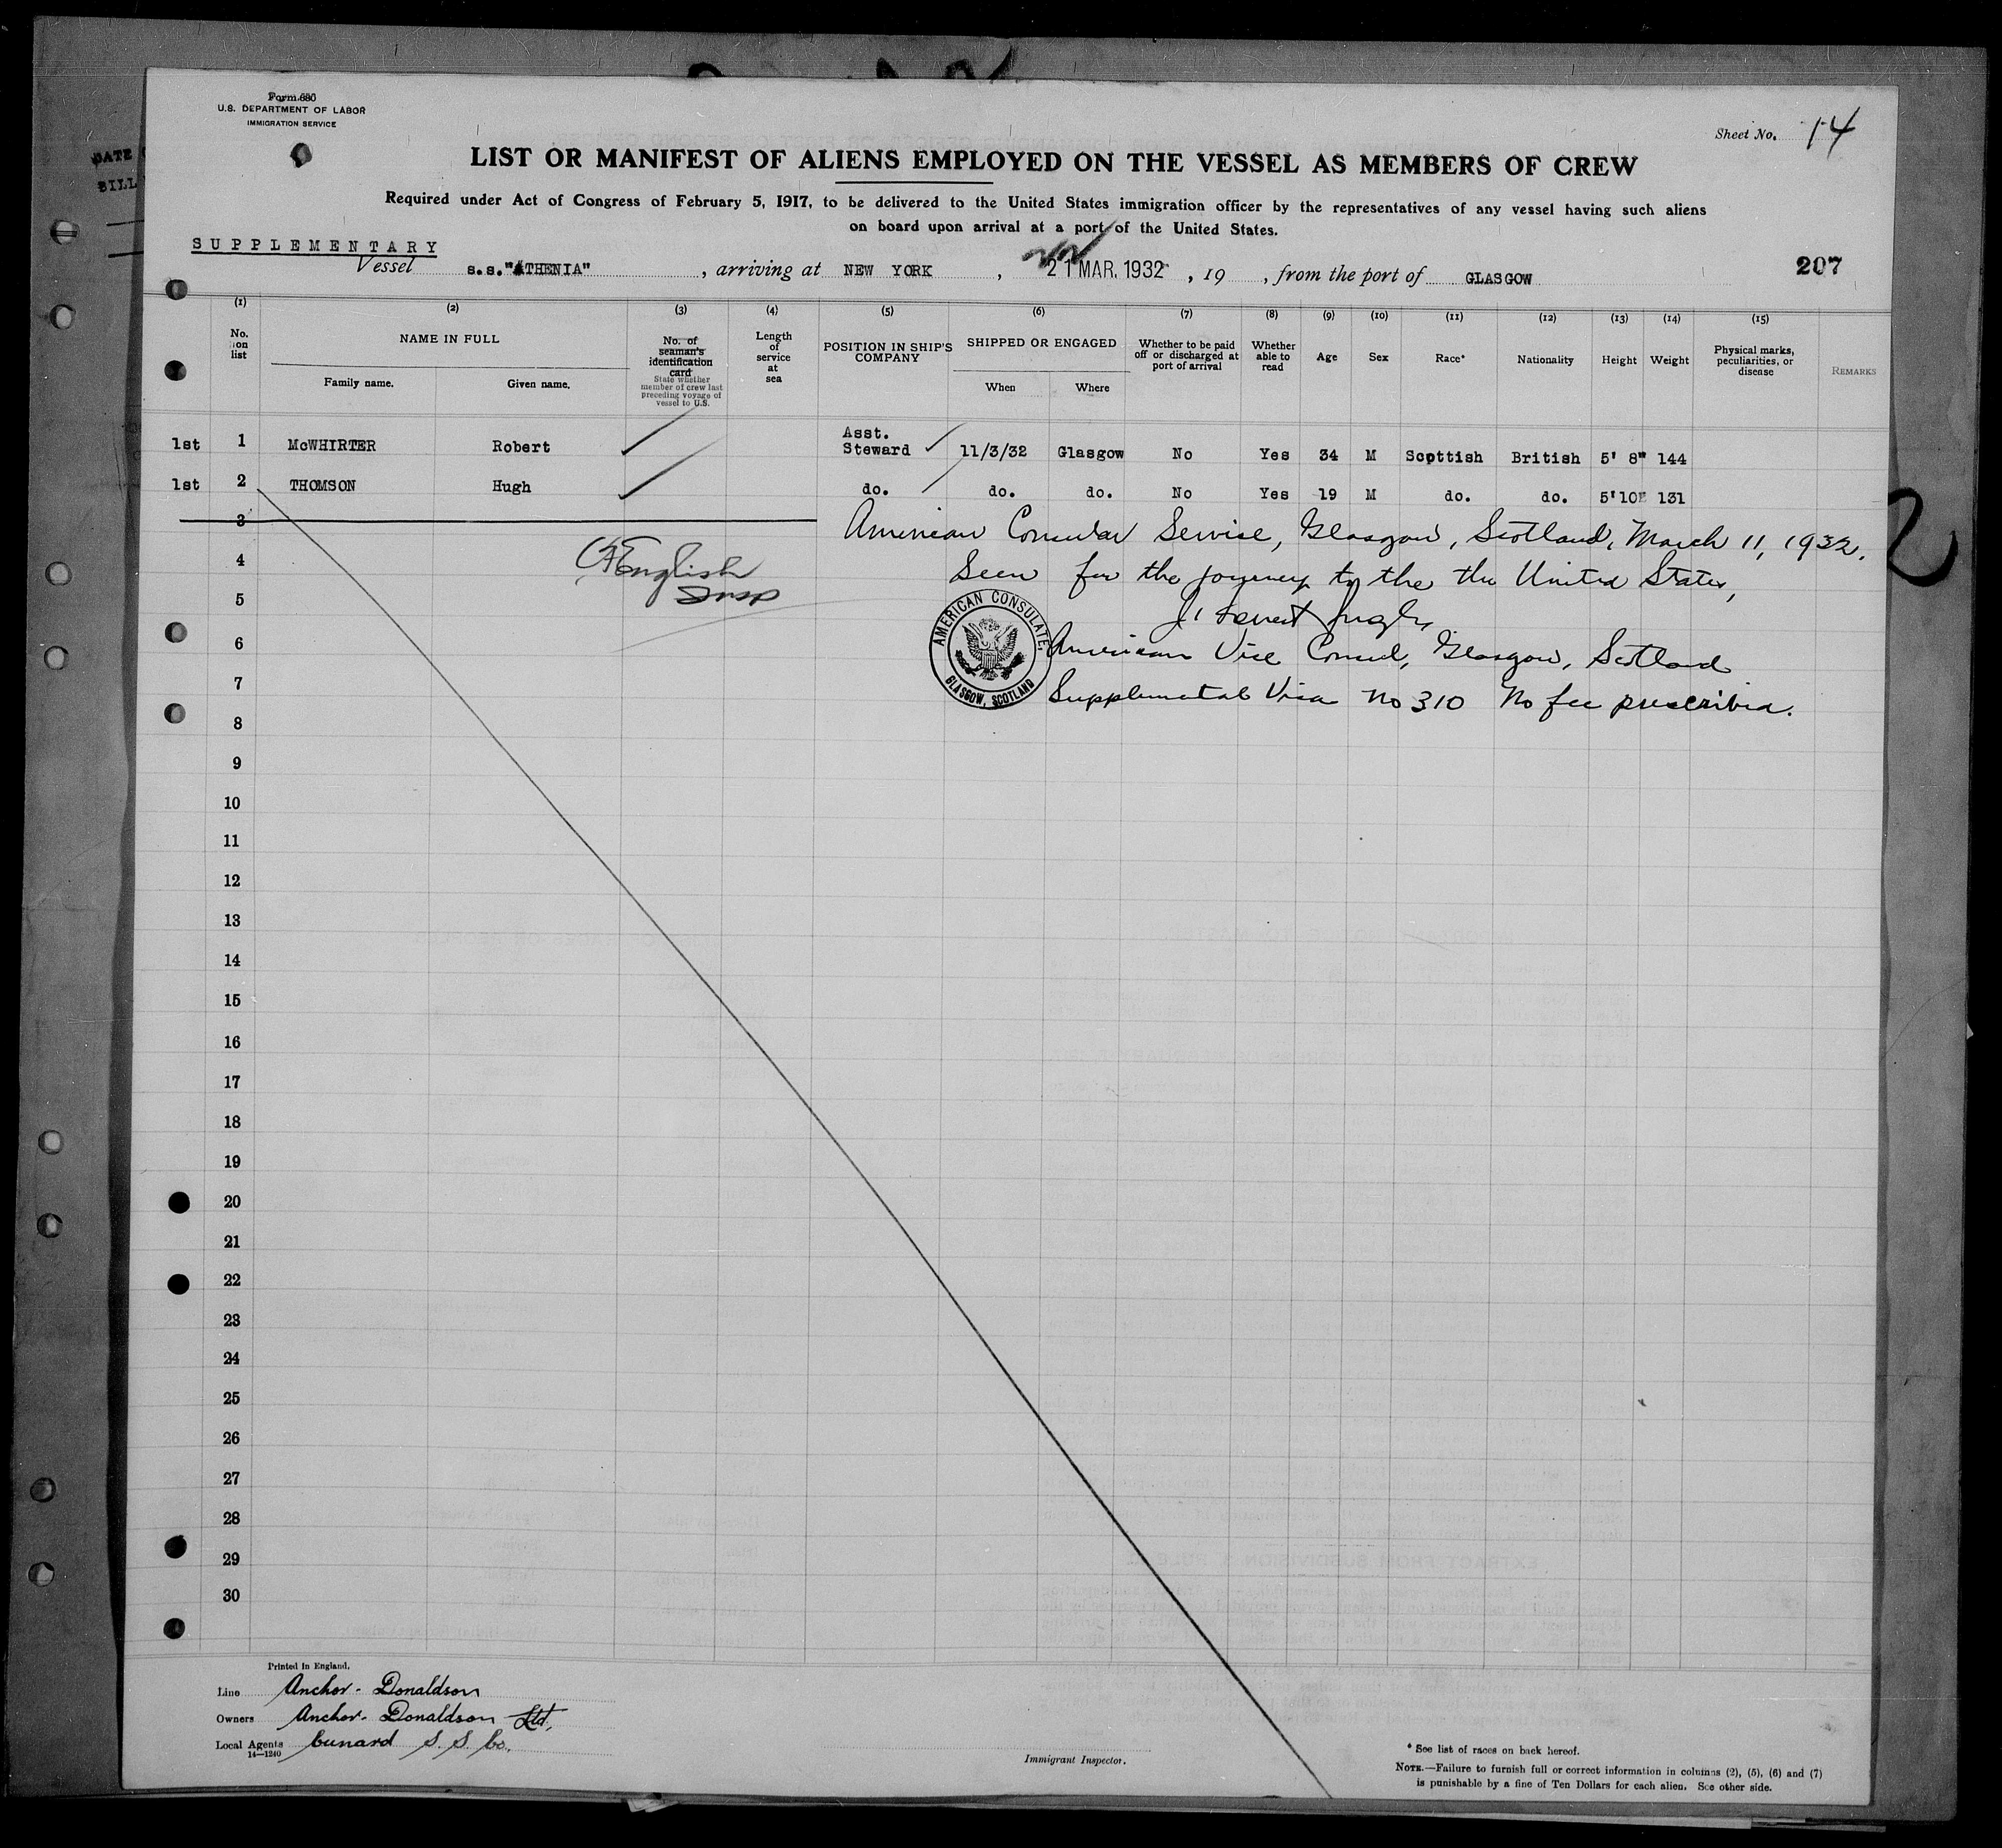 Form 680
U.S. DEPARTMENT OF LABOR
IMMIGRATION SERVICE
Sheet No. 14
LIST OR MANIFEST OF ALIENS EMPLOYED ON THE VESSEL AS MEMBERS OF CREW
Required under Act of Congress of February 5, 1917, to be delivered to the United States immigration officer by the representatives of any vessel having such aliens
on board upon arrival at a port of the United States.
SUPPLEMENTARY
Vessel s.s."ATHENIA", arriving at NEW YORK, 21 MAR. 1932, 19, from the port of GLASGOW
207
(1) (2) (3) (4) (5) (6) (7) (8) (9) (10) (11) (12) (13) (14) (15)
No. on list
NAME IN FULL
Family name. Given name.
No. of seaman's identification card
State whether member of crew last preceding voyage of vessel to U.S.
Length of service at sea
POSITION IN SHIP'S COMPANY
SHIPPED OR ENGAGED
When Where
Whether to be paid off or discharged at port of arrival
Whether able to read
Age
Sex
Race*
Nationality
Height
Weight
Physical marks, peculiarities, or disease
REMARKS
1st 1 McWHIRTER Robert Asst. Steward 11/3/32 Glasgow No Yes 34 M Scottish British 5' 8" 144
1st 2 THOMSON Hugh do. do. do. No Yes 19 M do. do. 5'10" 131
3
American Consular Service, Glasgow, Scotland, March 11, 1932.
4
English
Insp
Seen for the journey to the the United States,
5
AMERICAN CONSULATE.
GLASGOW, SCOTLAND
6
American Vice Consul, Glasgow, Scotland
7
Supplemental Visa No 310 No fee prescribed.
8
9
10
11
12
13
14
15
16
17
18
19
20
21
22
23
24
25
26
27
28
29
30
Printed in England.
Line Anchor-Donaldson
Owners Anchor-Donaldson Ltd.
Local Agents Cunard S. S. Co.
14—1240
Immigrant Inspector.
* See list of races on back hereof.
NOTE.—Failure to furnish full or correct information in columns (2), (5), (6) and (7)
is punishable by a fine of Ten Dollars for each alien. See other side.